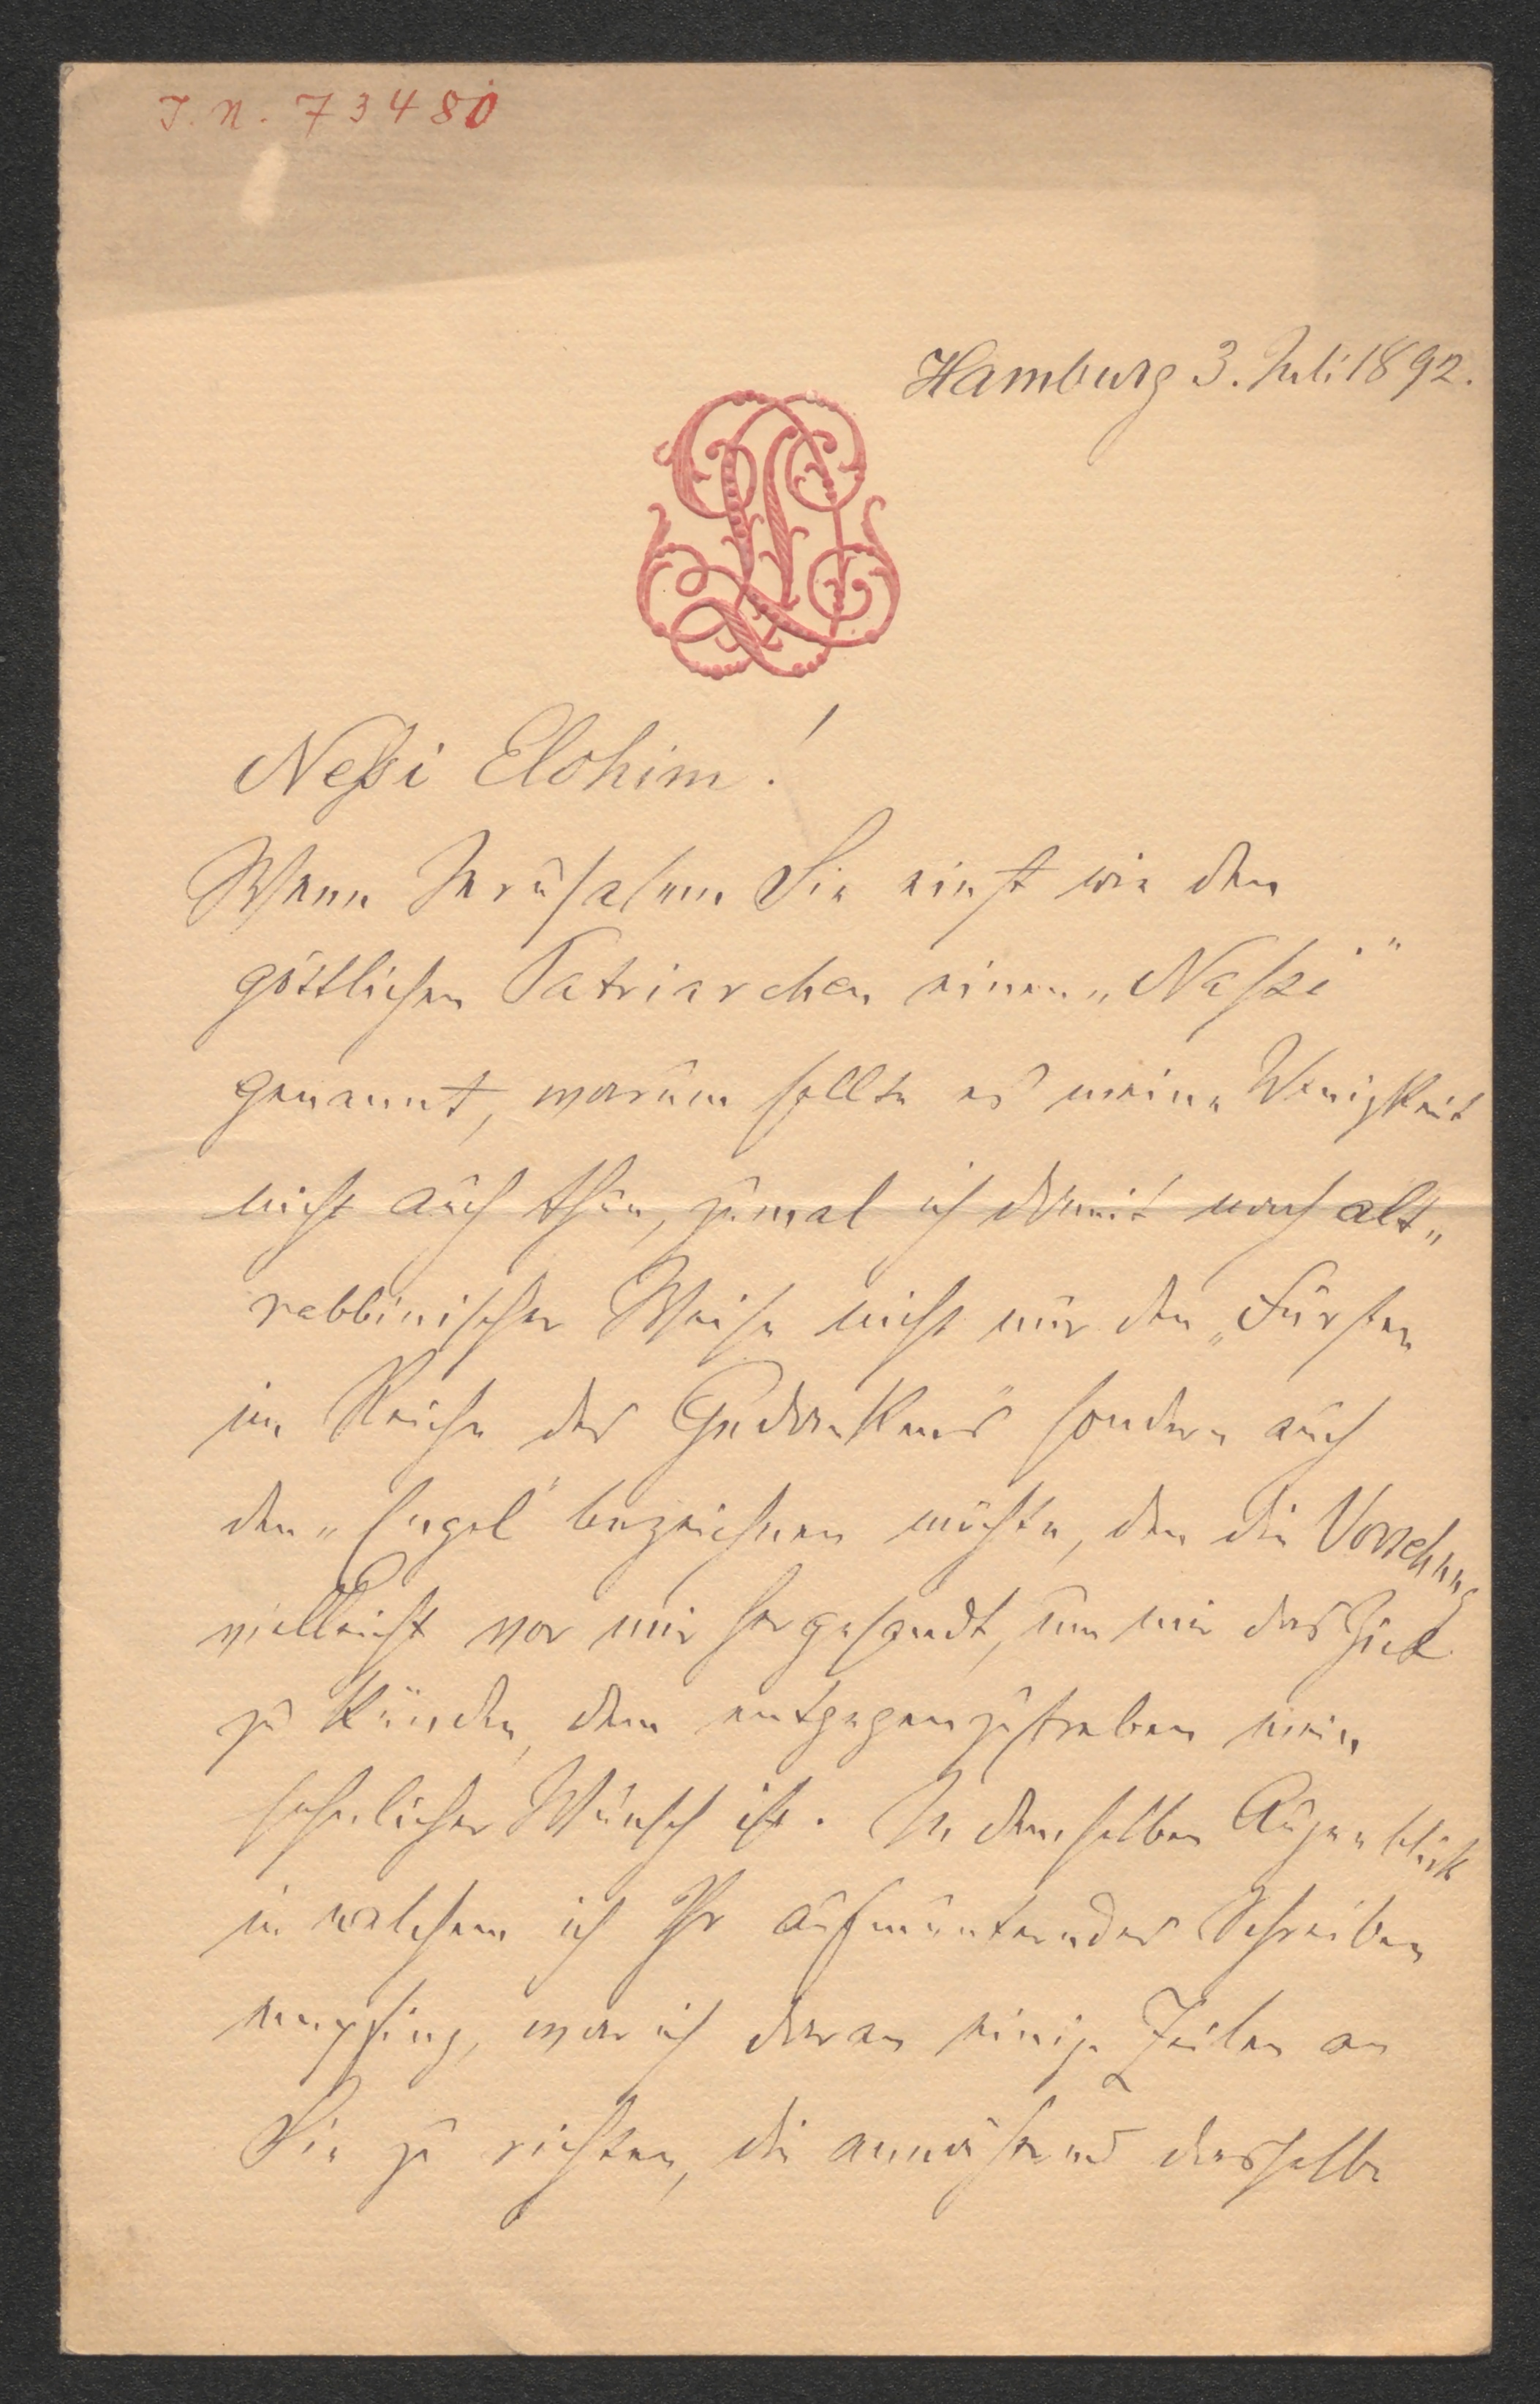 J. N. 73480
Hamburg 3. Juli 1892.
Neßi Elohim!
Wenn Jerusalem Sie einst wie den
göttlichen Patriarchen einen „Naßi“
genannt, warum sollte es meine Wenigkeit
nicht auch thun, zumal ich damit nach alt„
rabbinischer Weise nicht nur den „Fürsten
im Reiche des Gedankens“ sondern auch
den „Engel“ bezeichnen möchte, den die Vorsehung
vielleicht vor mir hergesandt, um mir das Ziel
zu künden, dem entgegenzustreben mein
sehnlicher Wunsch ist. In demselben Augenblick
in welchem ich Ihr aufmunterndes Schreiben
empfing, war ich daran einige Zeilen an
Sie zu richten, die annähernd dasselbe